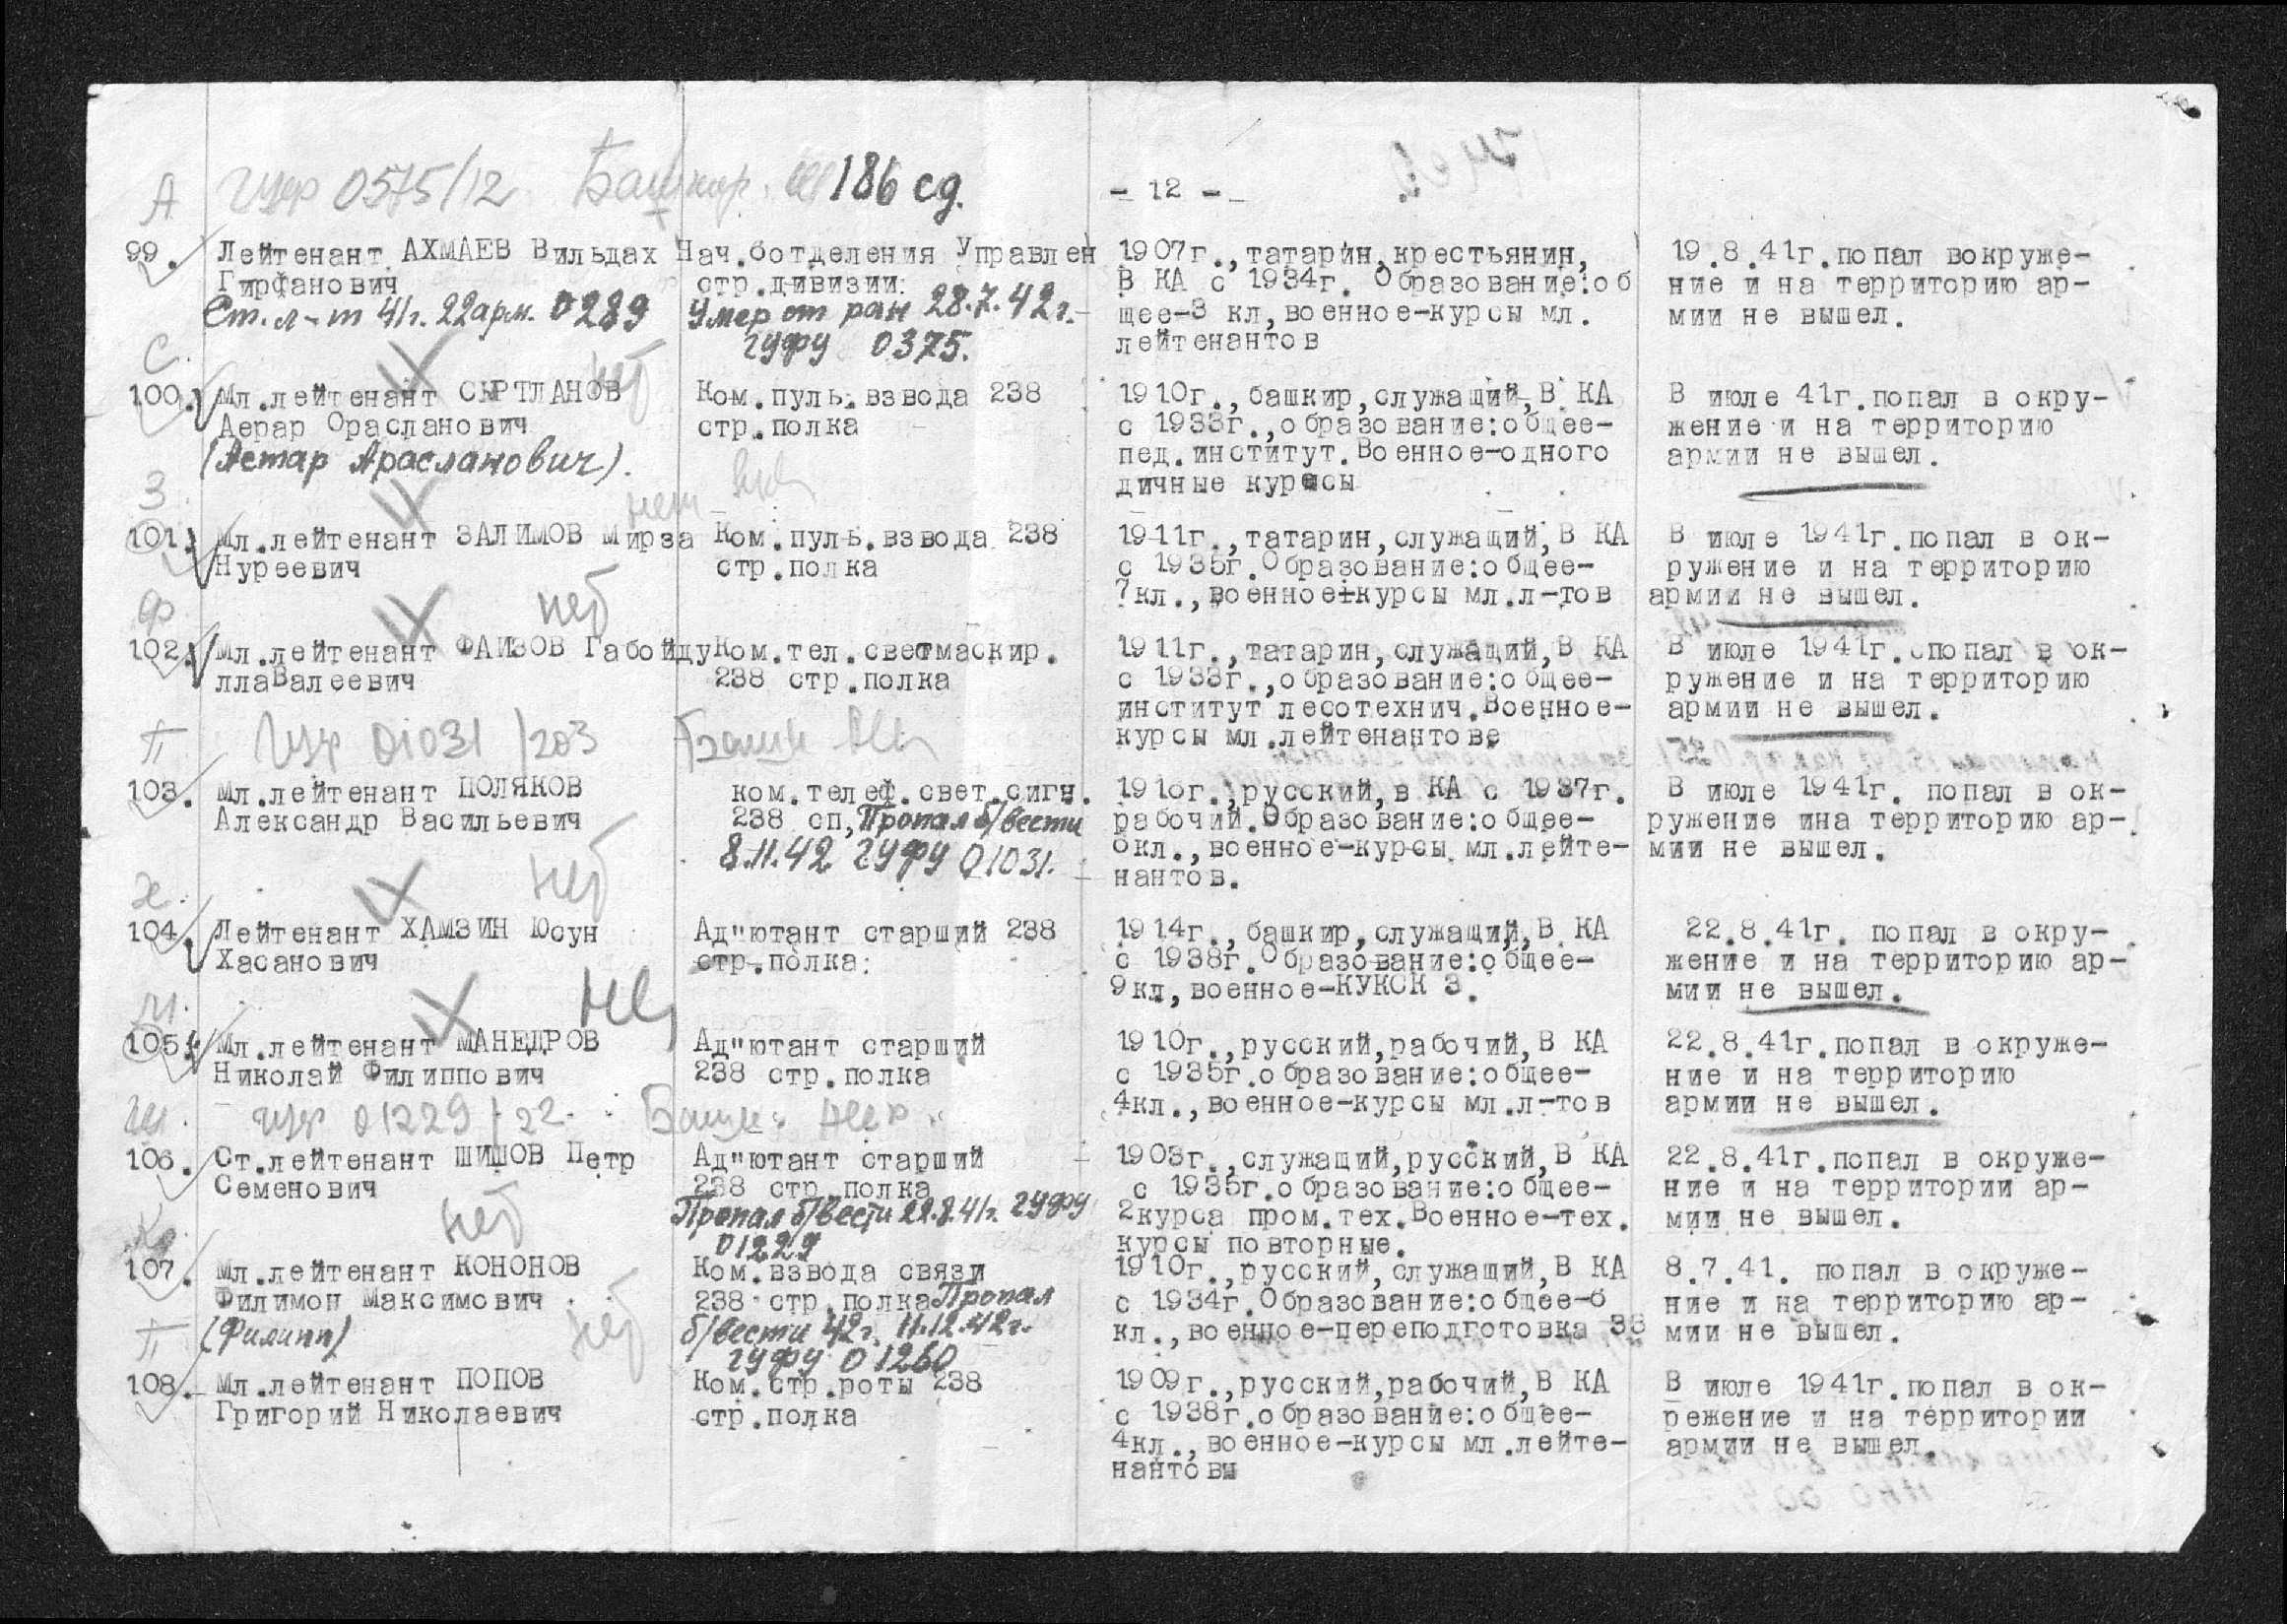 А гуф 0575/12 Башкир. 186 сд.
- 12 -
99. Лейтенант АХМАЕВ Вильдах
Гирфанович
Ст. л-т 41г. 22 арм. 0289
Нач.6отделения Управлен
стр.дивизии.
Умер от ран 28.7.42г.
гуфу 0375.
1907г.,татарин,крестьянин,
В КА с 1934г. Образование:об
щее-3 кл,военное-курсы мл.
лейтенантов
19.8.41г.попал вокруже-
ние и на территорию ар-
мии не вышел.
С. нет
100. Мл.лейтенант СЫРТЛАНОВ
Аерар Орасланович
(Астар Арасланович).
Ком.пуль.взвода 238
стр.полка
1910г.,башкир,служащий,В КА
с 1933г.,образование:общее-
пед.институт.Военное-одного
дичные курсы
В июле 41г.попал в окру-
жение и на территорию
армии не вышел.
З. нет
101. Мл.лейтенант ЗАЛИМОВ Мирза
Нуреевич
Ком.пуль.взвода 238
стр.полка
1911г.,татарин,служащий,В КА
с 1935г.Образование:общее-
7кл.,военное-курсы мл.л-тов
В июле 1941г.попал в ок-
ружение и на территорию
армии не вышел.
Ф нет
102. Мл.лейтенант ФАИЗОВ Габойду
ллаВалеевич
Ком.тел.светмаскир.
238 стр.полка
1911г.,татарин,служащий,В КА
с 1933г.,образование:общее-
институт лесотехнич.Военное-
курсы мл.лейтенантове
В июле 1941г.попал в ок-
ружение и на территорию
армии не вышел.
П гуф 01031/203 Башк
103. Мл.лейтенант ПОЛЯКОВ
Александр Васильевич
ком.телеф.свет.сигн.
238 сп,Пропал б/вести
8.11.42 гуфу 01031.
1916г.,русский,в КА с 1937г.
рабочий.Образование:общее-
6кл.,военное-курсы мл.лейте-
нантов.
В июле 1941г. попал в ок-
ружение ина территорию ар-
мии не вышел.
Х. нет
104. Лейтенант ХАМЗИН Юсун
Хасанович
Ад"ютант старший 238
стр.полка.
1914г., башкир,служащий,В КА
с 1938г.Образование:общее-
9кл,военное-КУКСК З.
22.8.41г. попал в окру-
жение и на территорию ар-
мии не вышел.
М. нет
105. Мл.лейтенант МАНЕДРОВ
Николай Филиппович
Ад"ютант старший
238 стр.полка
1910г.,русский,рабочий,В КА
с 1935г.образование:общее-
4кл.,военное-курсы мл.л-тов
22.8.41г.попал в окруже-
ние и на территорию
армии не вышел.
Ш. гуф 01229/22. Башк.
106. Ст.лейтенант ШИШОВ Петр
Семенович
Ад"ютант старший
238 стр.полка
Пропал б/вести 22.8.41г. гуфу
01229
1903г.,служащий,русский,В КА
с 1935г.образование:общее-
2курса пром.тех.Военное-тех.
курсы повторные.
22.8.41г.попал в окруже-
ние и на территории ар-
мии не вышел.
К. нет
107. Мл.лейтенант КОНОНОВ
Филимон Максимович
(Филипп)
Ком.взвода связи
238 стр.полка Пропал
б/вести 42г. 11.12.42г.
гуфу 01260
1910г.,русский,служащий,В КА
с 1934г.Образование:общее-6
кл.,военное-переподготовка 38
8.7.41. попал в окруже-
ние и на территорию ар-
мии не вышел.
П нет
108. Мл.лейтенант ПОПОВ
Григорий Николаевич
Ком.стр.роты 238
стр.полка
1909г.,русский,рабочий,В КА
с 1938г.образование:общее-
4кл.,военное-курсы мл.лейте-
нантовы
В июле 1941г.попал в ок-
режение и на территории
армии не вышел.